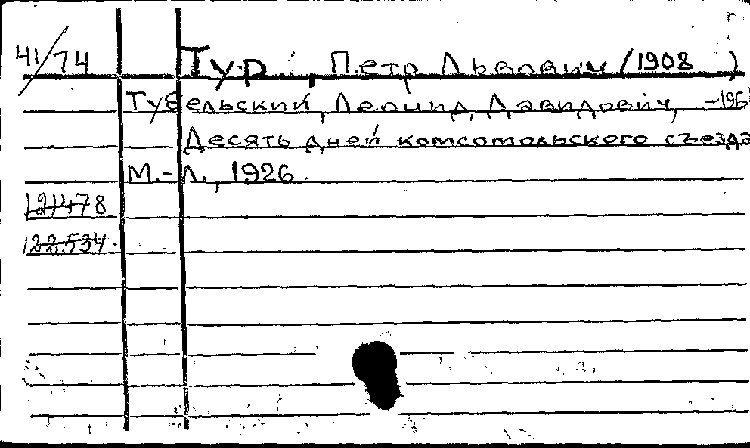 41/74 Тур, Петр Львович (1908 )
Тубельский, Леонид Давидович, -196
Десять дней комсомольского съезда
М.-Л., 1926
121478
122534